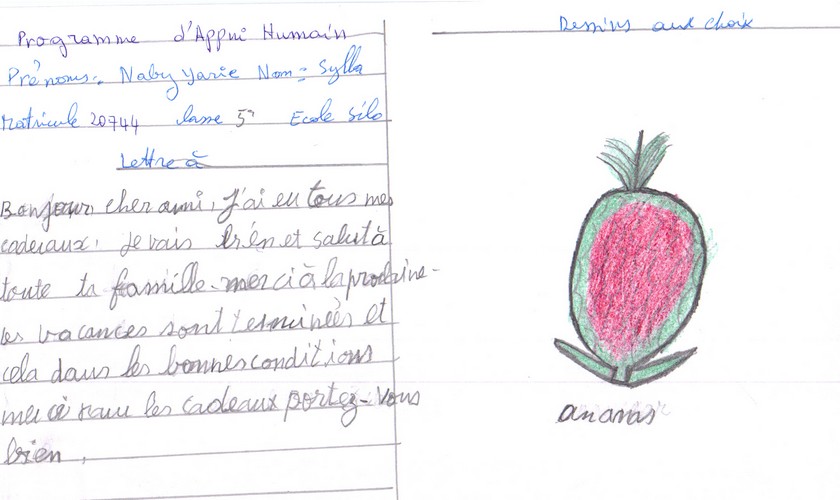 Programme d'Appui Humain
Prénoms: Naby Yarie Nom: Sylla
Matricule 20744 classe 5ª Ecole Silo
Lettre à
Bonjour, cher ami, J'ai eu tous mes
cadeaux. Je vais bien et salut à
toute ta famille. merci à la prochaine.
les vacances sont terminées et
cela dans les bonnes conditions
merci pour les cadeaux portez-vous
bien.
Dessins aux choix
ananas